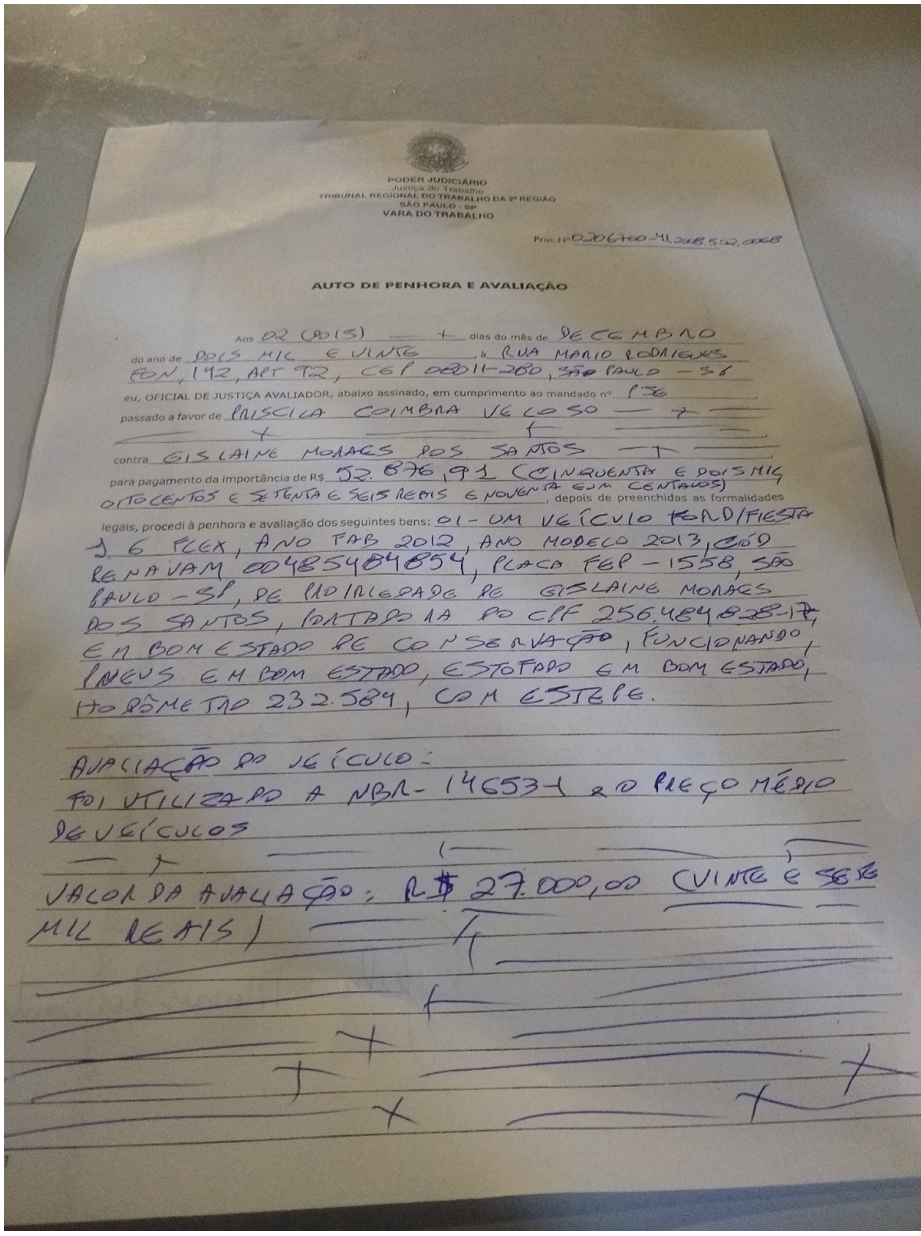 PODER JUDICIÁRIO
Justiça do Trabalho
TRIBUNAL REGIONAL DO TRABALHO DA 2ª REGIÃO
SÃO PAULO - SP
VARA DO TRABALHO
Proc. Nº
AUTO DE PENHORA E AVALIAÇÃO
Aos 02 (DOIS) dias do mês de DECEMBRO
do ano de DOIS MIL E VINTE, à RUA MARIO RODRIGUES
142, APT 92, CEP 08011-280, SÃO PAULO - SP
eu, OFICIAL DE JUSTIÇA AVALIADOR, abaixo assinado, em cumprimento ao mandado nº
passado a favor de PRISCILA COIMBRA VELOSO
contra GISLAINE MORAES DOS SANTOS
para pagamento da importância de R$ 52.876,91 (CINQUENTA E DOIS MIL,
OITOCENTOS E SETENTA E SEIS REAIS E NOVENTA E UM CENTAVOS), depois de preenchidas as formalidades
legais, procedi à penhora e avaliação dos seguintes bens: 01 - UM VEÍCULO FORD/FIESTA
1.6 FLEX, ANO FAB 2012, ANO MODELO 2013, CÓD
RENAVAM 00485484854, PLACA FEP - 1558, SÃO
PAULO - SP, DE PROPRIEDADE DE GISLAINE MORAES
DOS SANTOS, PORTADORA DO CPF 256.484.828-17,
EM BOM ESTADO DE CONSERVAÇÃO, FUNCIONANDO,
PNEUS EM BOM ESTADO, ESTOFADO EM BOM ESTADO,
HODÔMETRO 232.584, COM ESTEPE.
AVALIAÇÃO DO VEÍCULO:
FOI UTILIZADO A NBR - 14653-1 e O PREÇO MÉDIO
DE VEÍCULOS
VALOR DA AVALIAÇÃO: R$ 27.000,00 (VINTE E SETE
MIL REAIS)